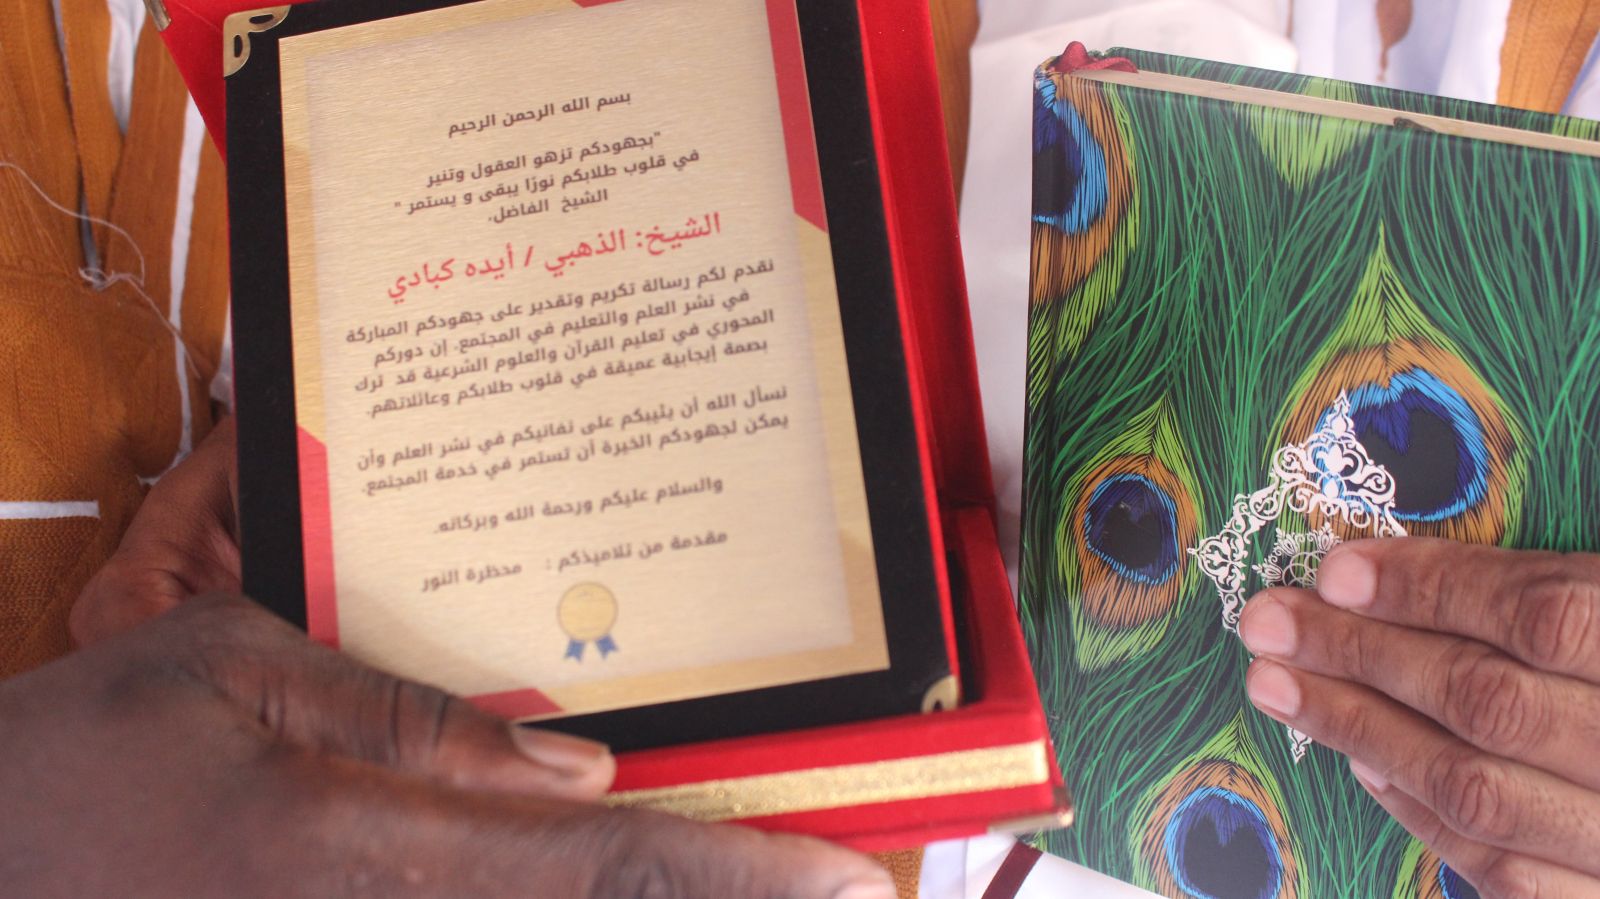 بسم الله الرحمن الرحيم
"بجهودكم تزهو العقول وتنير
في قلوب طلابكم نورًا يبقى و يستمر "
الشيخ الفاضل،
الشيخ: الذهبي / أيده كبادي
نقدم لكم رسالة تكريم وتقدير على جهودكم المباركة
في نشر العلم والتعليم في المجتمع. إن دوركم
المحوري في تعليم القرآن والعلوم الشرعية قد ترك
بصمة إيجابية عميقة في قلوب طلابكم وعائلاتهم.
نسأل الله أن يثيبكم على تفانيكم في نشر العلم وأن
يمكن لجهودكم الخيرة أن تستمر في خدمة المجتمع.
والسلام عليكم ورحمة الله وبركاته.
مقدمة من تلاميذكم : محظرة النور